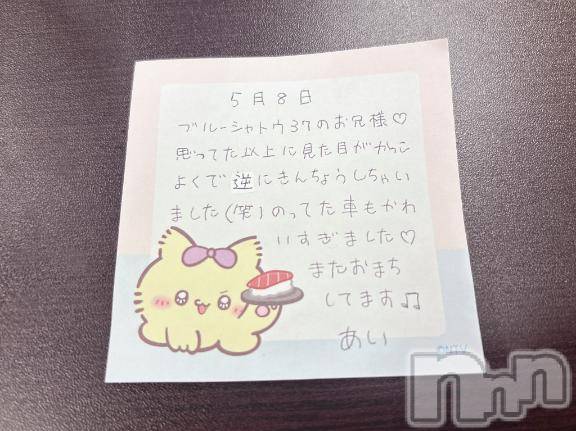 5月8日
ブルーシャトウ37のお兄様♡
思ってた以上に見た目がかっこ
よくて逆にきんちょうしちゃい
ました(笑)のってた車もかわ
いすぎました♡
またおまち
してます♫
あい
©NTV
nnn